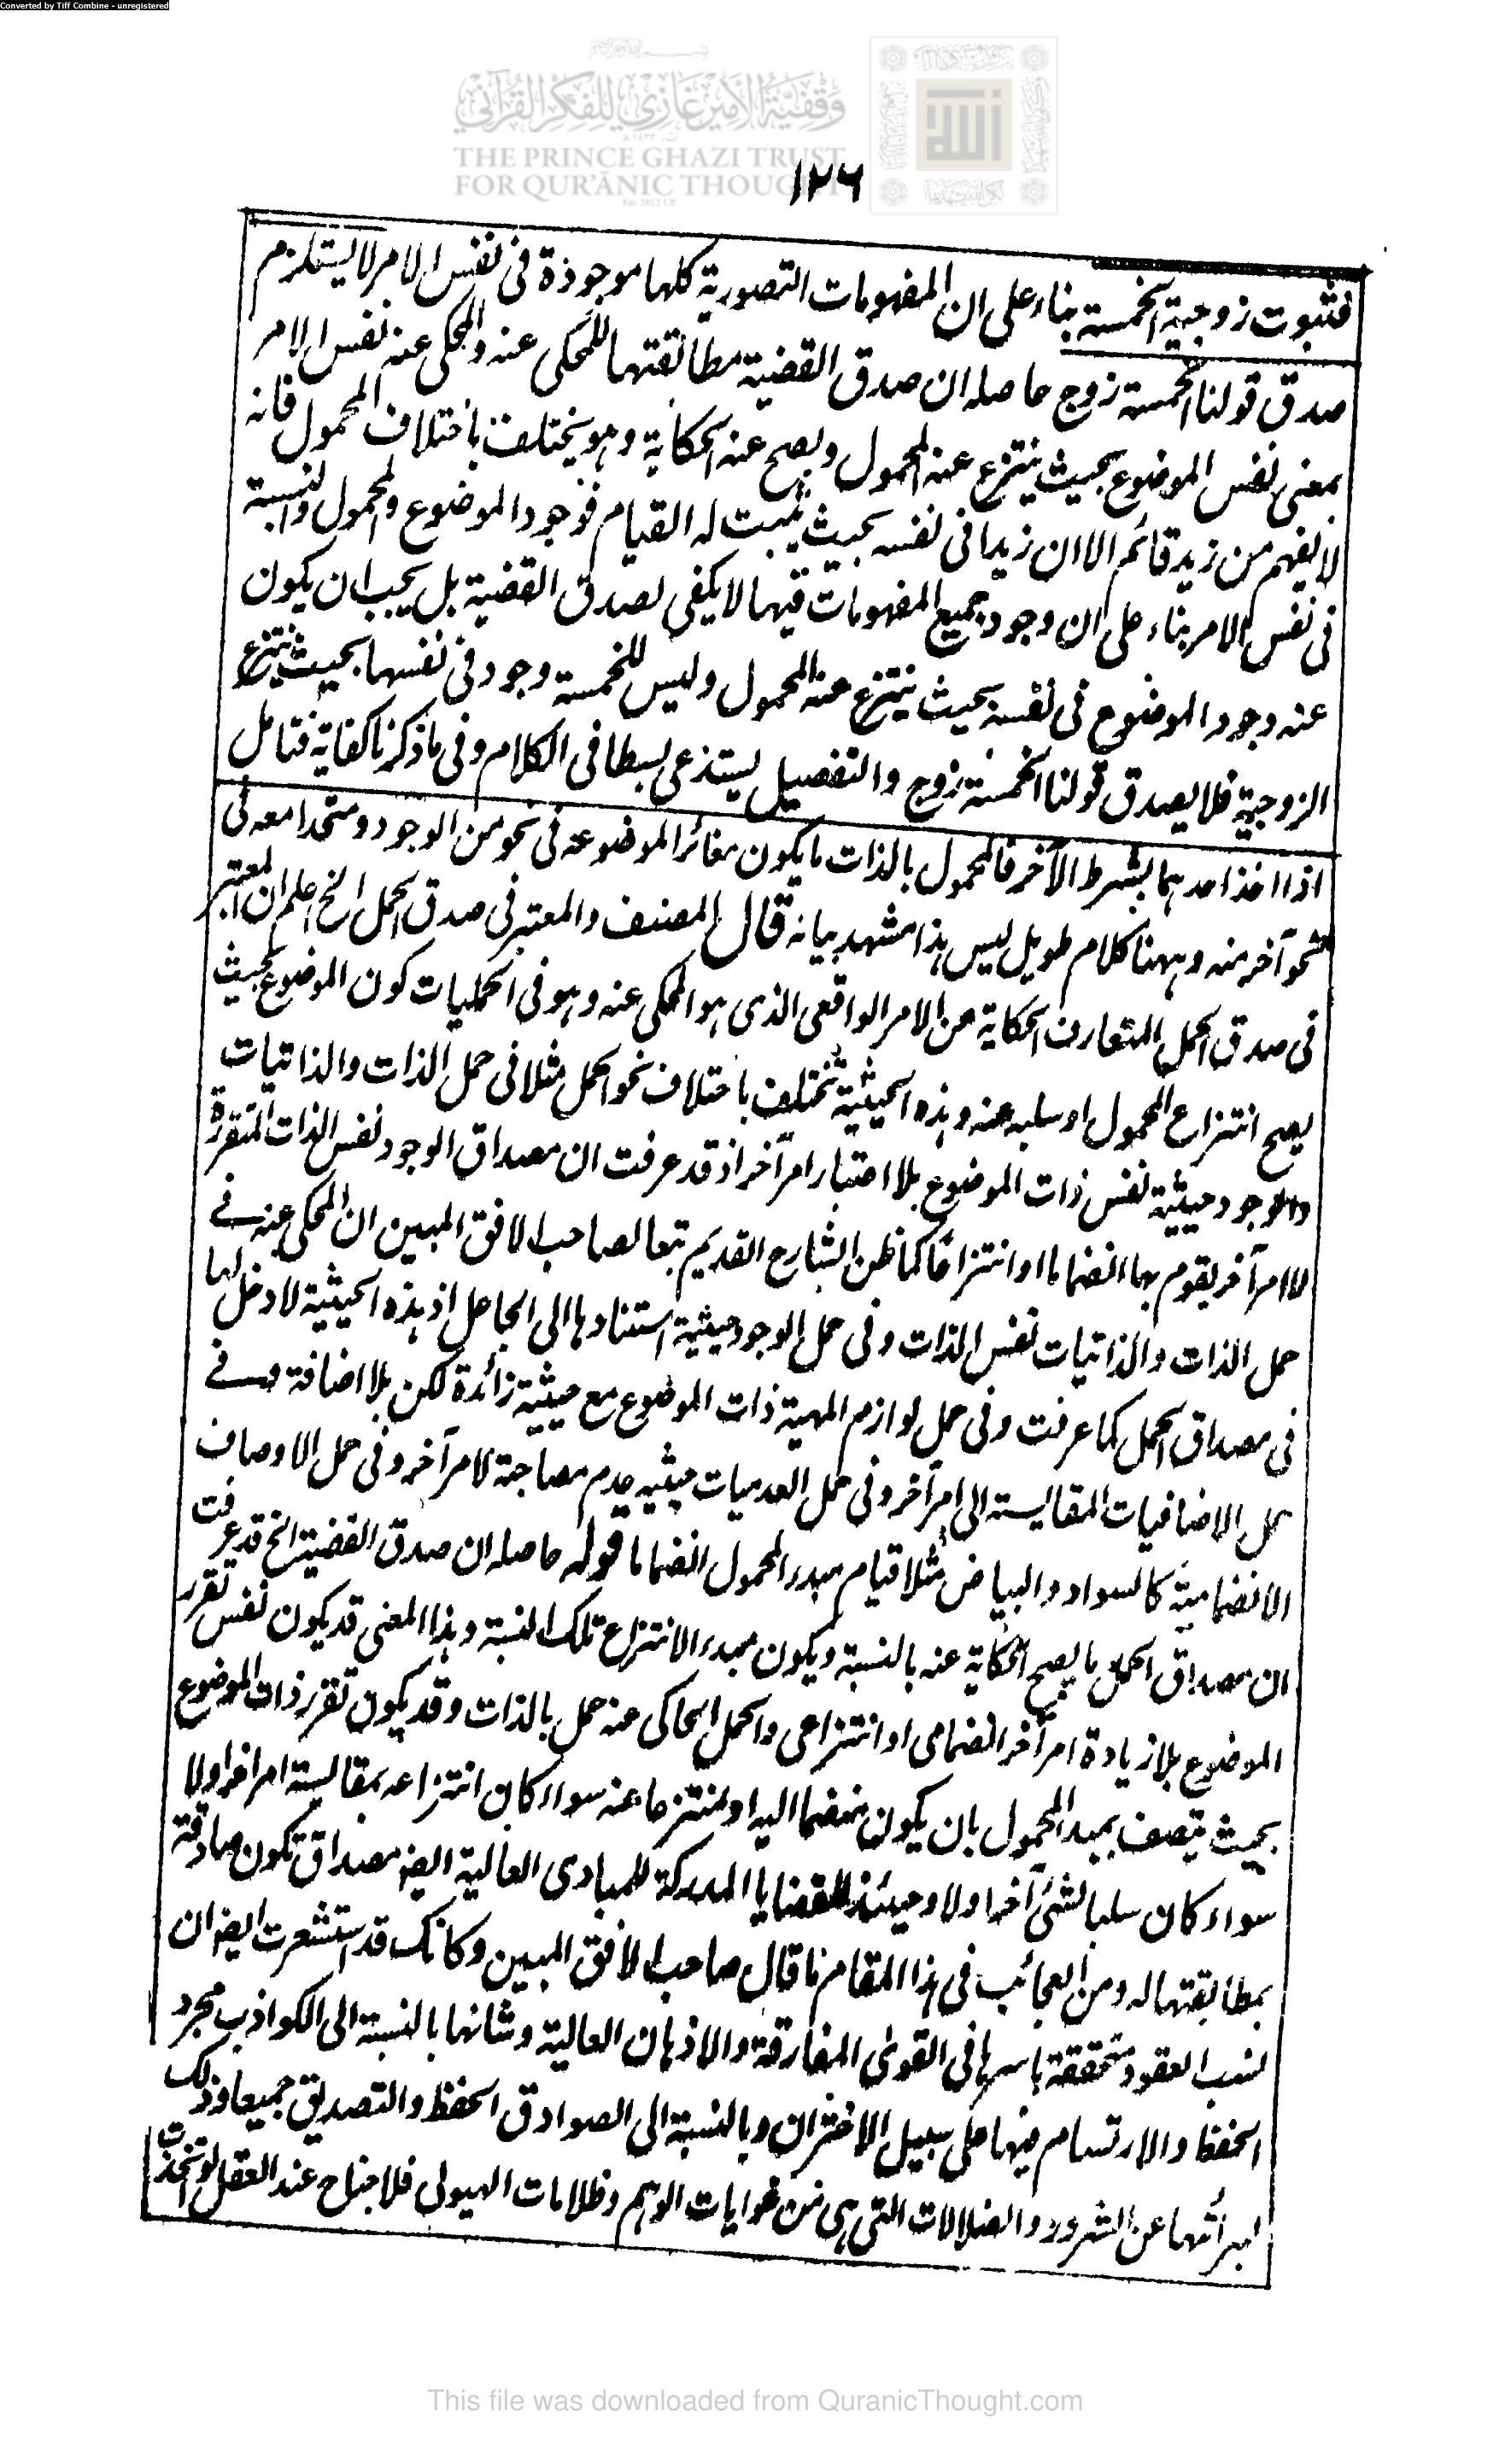 Converted by Tiff Combine - unregistered
وقفية الأمير غازي للفكر القرآني
THE PRINCE GHAZI TRUST
FOR QUR'ĀNIC THOUGHT
Est. 2012 CE
١٢٦
فثبوت زوجية الخمسة بناء على ان المفهومات التصورية كلها موجودة فى نفس الامر لا يستلزم
صدق قولنا الخمسة زوج حاصله ان صدق القضية مطابقتها للمحكى عنه والمحكى عنه نفس الامر
بمعنى نفس الموضوع بحيث ينتزع عنه المحمول ويصح عنه الحكاية وهو يختلف باختلاف المحمول فانه
لا يفهم من زيد قائم الا ان زيدا فى نفسه بحيث يثبت له القيام فوجود الموضوع والمحمول والنسبة
فى نفس الامر بناء على ان وجود جميع المفهومات فيها لا يكفى لصدق القضية بل يجب ان يكون
عنه وجود الموضوع فى نفسه بحيث ينتزع عنه المحمول وليس للخمسة وجود فى نفسها بحيث ينتزع
الزوجية فلا يصدق قولنا الخمسة زوج والتفصيل يستدعى بسطا فى الكلام وفى ما ذكرنا كفاية فتامل
اذا اخذ احدهما بشرط الآخر فالمحمول بالذات ما يكون مغائرا لموضوعه فى نحو من الوجود ومتحدا معه فى
نحو آخر منه وههنا كلام طويل ليس هذا مشهد بيانه قال المصنف والمعتبر فى صدق الحمل الخ اعلم ان المعتبر
فى صدق الحمل المتعارف الحكاية عن الامر الواقعى الذى هو المحكى عنه وهو فى الحمليات كون الموضوع بحيث
يصح انتزاع المحمول او سلبه عنه وهذه الحيثية تختلف باختلاف نحو الحمل مثلا فى حمل الذات والذاتيات
والوجود حيثية نفس ذات الموضوع بلا اعتبار امر آخر اذ قد عرفت ان مصداق الوجود نفس الذات المتقررة
لا امر آخر يقوم بها انضماما او انتزاعا كما ظن الشارح القديم تبعا لصاحب الافق المبين ان المحكى عنه فى
حمل الذات والذاتيات نفس الذات وفى حمل الوجود حيثية استنادها الى الجاعل اذ هذه الحيثية لا دخل لها
فى مصداق الحمل كما عرفت وفى حمل لوازم المهية ذات الموضوع مع حيثية زائدة لكن بلا اضافة وفى
حمل الاضافيات المقايسة الى امر آخر وفى حمل العدميات حيثيه عدم مصاحبة لامر آخر وفى حمل الاوصاف
الانضمامية كالسواد والبياض مثلا قيام مبدء المحمول انضماما قوله حاصله ان صدق القضية الخ قد عرفت
ان مصداق الحمل ما يصح الحكاية عنه بالنسبة ويكون مبدء الانتزاع تلك النسبة وهذا المعنى قد يكون نفس تقرر
الموضوع بلا زيادة امر آخر انضمامى او انتزاعى والحمل الحاكى عنه حمل بالذات وقد يكون تقرر ذات الموضوع
بحيث يتصف بمبدا المحمول بان يكون منضما اليه او منتزعا عنه سواء كان انتزاعه بمقايسة امر آخر او لا
سواء كان سلبا لشئ آخر او لا وحينئذ للقضايا المدركة للمبادى العالية ايضا مصداق تكون صادقة
بمطابقتها له ومن العجائب فى هذا المقام ما قال صاحب الافق المبين وكانك قد استشعرت ايضا ان
نسب العقود متحققة باسرها فى القوى المفارقة والاذهان العالية وشانها بالنسبة الى الكواذب مجرد
الحفظ والارتسام فيها على سبيل الاختزان وبالنسبة الى الصوادق الحفظ والتصديق جميعا وذلك
لبرأتها عن الشرور والضلالات التى هى من غوايات الوهم وظلامات الهيولى فلا جناح عند العقل لو تتخذت
This file was downloaded from QuranicThought.com